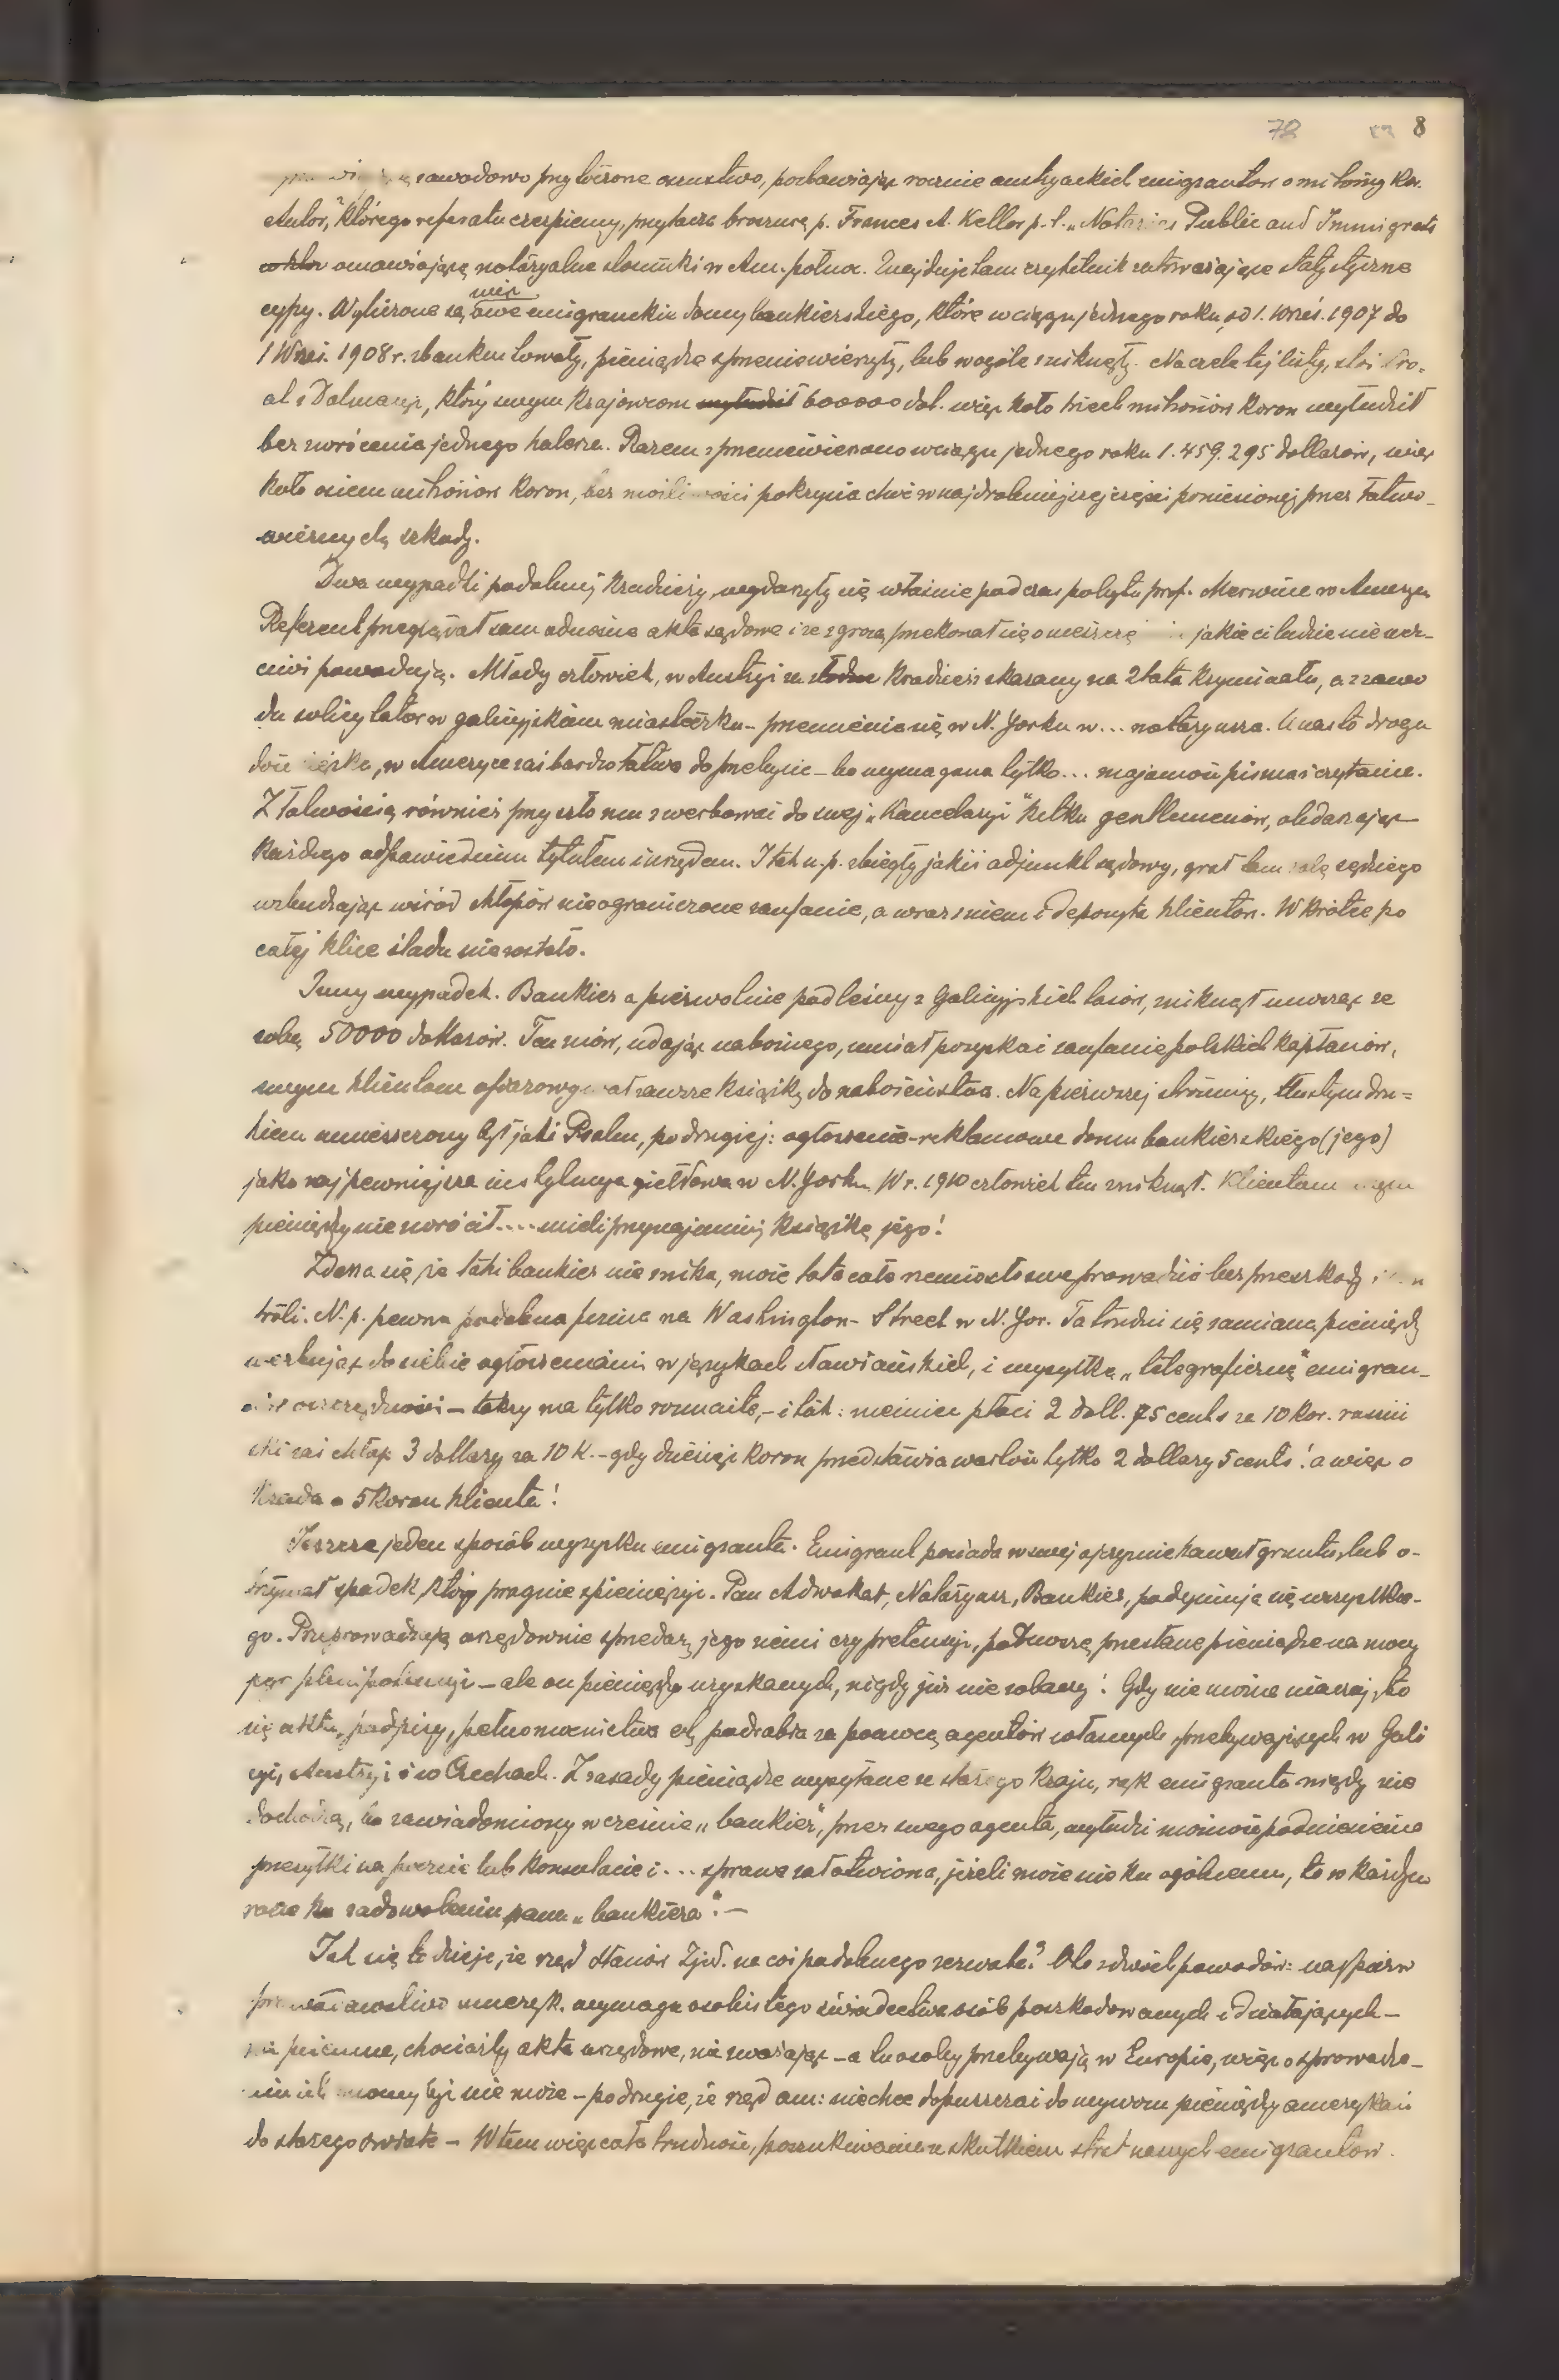 78 8
zawodowo przyłożone oszustwo, pozbawiając rocznie austryackich emigrantów o miliony kor.
Autor, którego referatu czerpiemy, przytacza broszurę p. Frances A. Kellor p. t. „Notaries Public and Immigrants
omawiającą notaryalne stosunki w Am. połnoc. Znajduje tam czytelnik zatrważające statystyczne
cyfry. Wyliczone są więc owe emigranckie domy bankierskiego, które w ciągu jednego roku, od 1. Wrześ. 1907 do
1 Wrześ. 1908 r. zbankrutowały, pieniądze sprzeniewierzyły, lub wogóle zniknęły. Na czele tej listy, stoi
z Dalmacyi, który swym krajowcom wyłudził 600000 dol. więc koło trzech milionów koron wyłudził
bez zwrócenia jednego halerza. Razem sprzeniewierzono w ciągu jednego roku 1.459.295 dollarów, więc
koło osiem milionów koron, bez możliwości pokrycia choć w najdrobniejszej części poniesionej przez łatwo-
wiernych, szkody.
Dwa wypadki podobnej kradzieży, wydarzyły się właśnie podczas pobytu prof. Merwina w Ameryce
Referent przeglądał sam odnośne akta sądowe i ze zgrozą przekonał się o nieszczę jakie ci ludzie niecz-
ciwi powodują. Młody człowiek, w Austryi za kradzież skazany na 2 lata kryminału, a z zawo
du solicytator w galicyjskiem miasteczku – przemienia się w N. Yorku w... notaryusza. U nas to droga
dość ciężka, w Ameryce zaś bardzo łatwa do przebycia – bo wymagana tylko... znajomość pisma i czytania.
Z łatwością również przyszło mu zwerbować do swej „Kancelaryi" kilku gentlemenów, obdarzając
każdego odpowiednim tytułem i urzędem. I tak n.p. zbiegły jakiś adjunkt sądowy, grał tam rolę sędziego
wzbudzając wśród chłopów nieograniczone zaufanie, a wraz z niem i depozyta klientów. Wkrótce po
całej klice śladu nie zostało.
Inny wypadek. Bankier a pierwotnie podleśny z Galicyjskich lasów, zniknął unosząc ze
sobą 50000 dollarów. Ten znów, udając nabożnego, umiał pozyskać zaufanie polskich kapłanów,
swym klientom ofiarowywał zawsze książkę do nabożeństwa. Na pierwszej stronicy, tłustym dru=
kiem umieszczony był jakiś Psalm, po drugiej: ogłoszenie-reklamowe domu bankierskiego (jego)
jako najpewniejsza instytucya giełdowa w N. Yorku. W r. 1910 człowiek ten zniknął. Klientom swym
pieniędzy nie zwrócił.... mieli przynajmniej książkę jego!
Zdarza się, że taki bankier nie znika, może lata całe rzemiosło swe prowadzić bez przeszkody i kon
troli. N. p. pewna podobna firma na Washington- Street w N. Yor. Ta trudni się zamianą pieniędzy
werbując do siebie ogłoszeniami w językach słowiańskich, i wysyłką „telegraficzną" emigran-
oszczędności – taksy ma tylko rozmaite, – i tak: niemiec płaci 2 doll. 75 cents za 10 kor. rusiń
ski zaś chłop 3 dollary za 10 K. – gdy dziesięć koron przedstawia wartość tylko 2 dollary 5 cents! a więc o
krada o 5 koron klienta!
Jeszcze jeden sposób wyzysku emigranta. Emigrant posiada w swej ojczyznie kawał gruntu, lub o-
trzymał spadek, który pragnie spieniężyć. Pan Adwokat, Notaryusz, Bankier, podejmuje się wszystkie-
go. Przeprowadzają urzędownie sprzedaż jego ziemi czy pretensyi, przesłane pieniądze na mocy
plenipotencyi – ale on pieniędzy uzyskanych, nigdy już nie zobaczy! Gdy nie można inaczej, to
się akta, podpisy, pełnomocnictwa etc, podrabia za pomocą agentów własnych przebywających w Gali
cyi, Austryi i w Czechach. Z zasady pieniądze wysyłane ze starego kraju, rąk emigranta nigdy nie
dochodzą, bo zawiadomiony wcześnie „bankier", przez swego agenta, wyłudzi możność podniesienia
przesyłki na poczcie lub konsulacie i... sprawa załatwiona, jeżeli może nie ku ogólnemu, to w każdym
razie ku zadowoleniu pana „bankiera". –
Jak się to dzieje, że rząd Stanów Zjed. na coś podobnego zezwala? Oto z dwóch powodów: najpierw
ameryk. wymaga osobistego świadectwa osób poszkodowanych i działających –
na pisemne, chociażby akta urzędowe, nie zważając – a te osoby przebywają w Europie, więc o sprowadze-
niu ich mowy być nie może – po drugie, że rząd am: niechce dopuszczać do wywozu pieniędzy amerykań
do starego świata – W tem więc cała trudność, poszukiwania ze skutkiem strat naszych emigrantów.